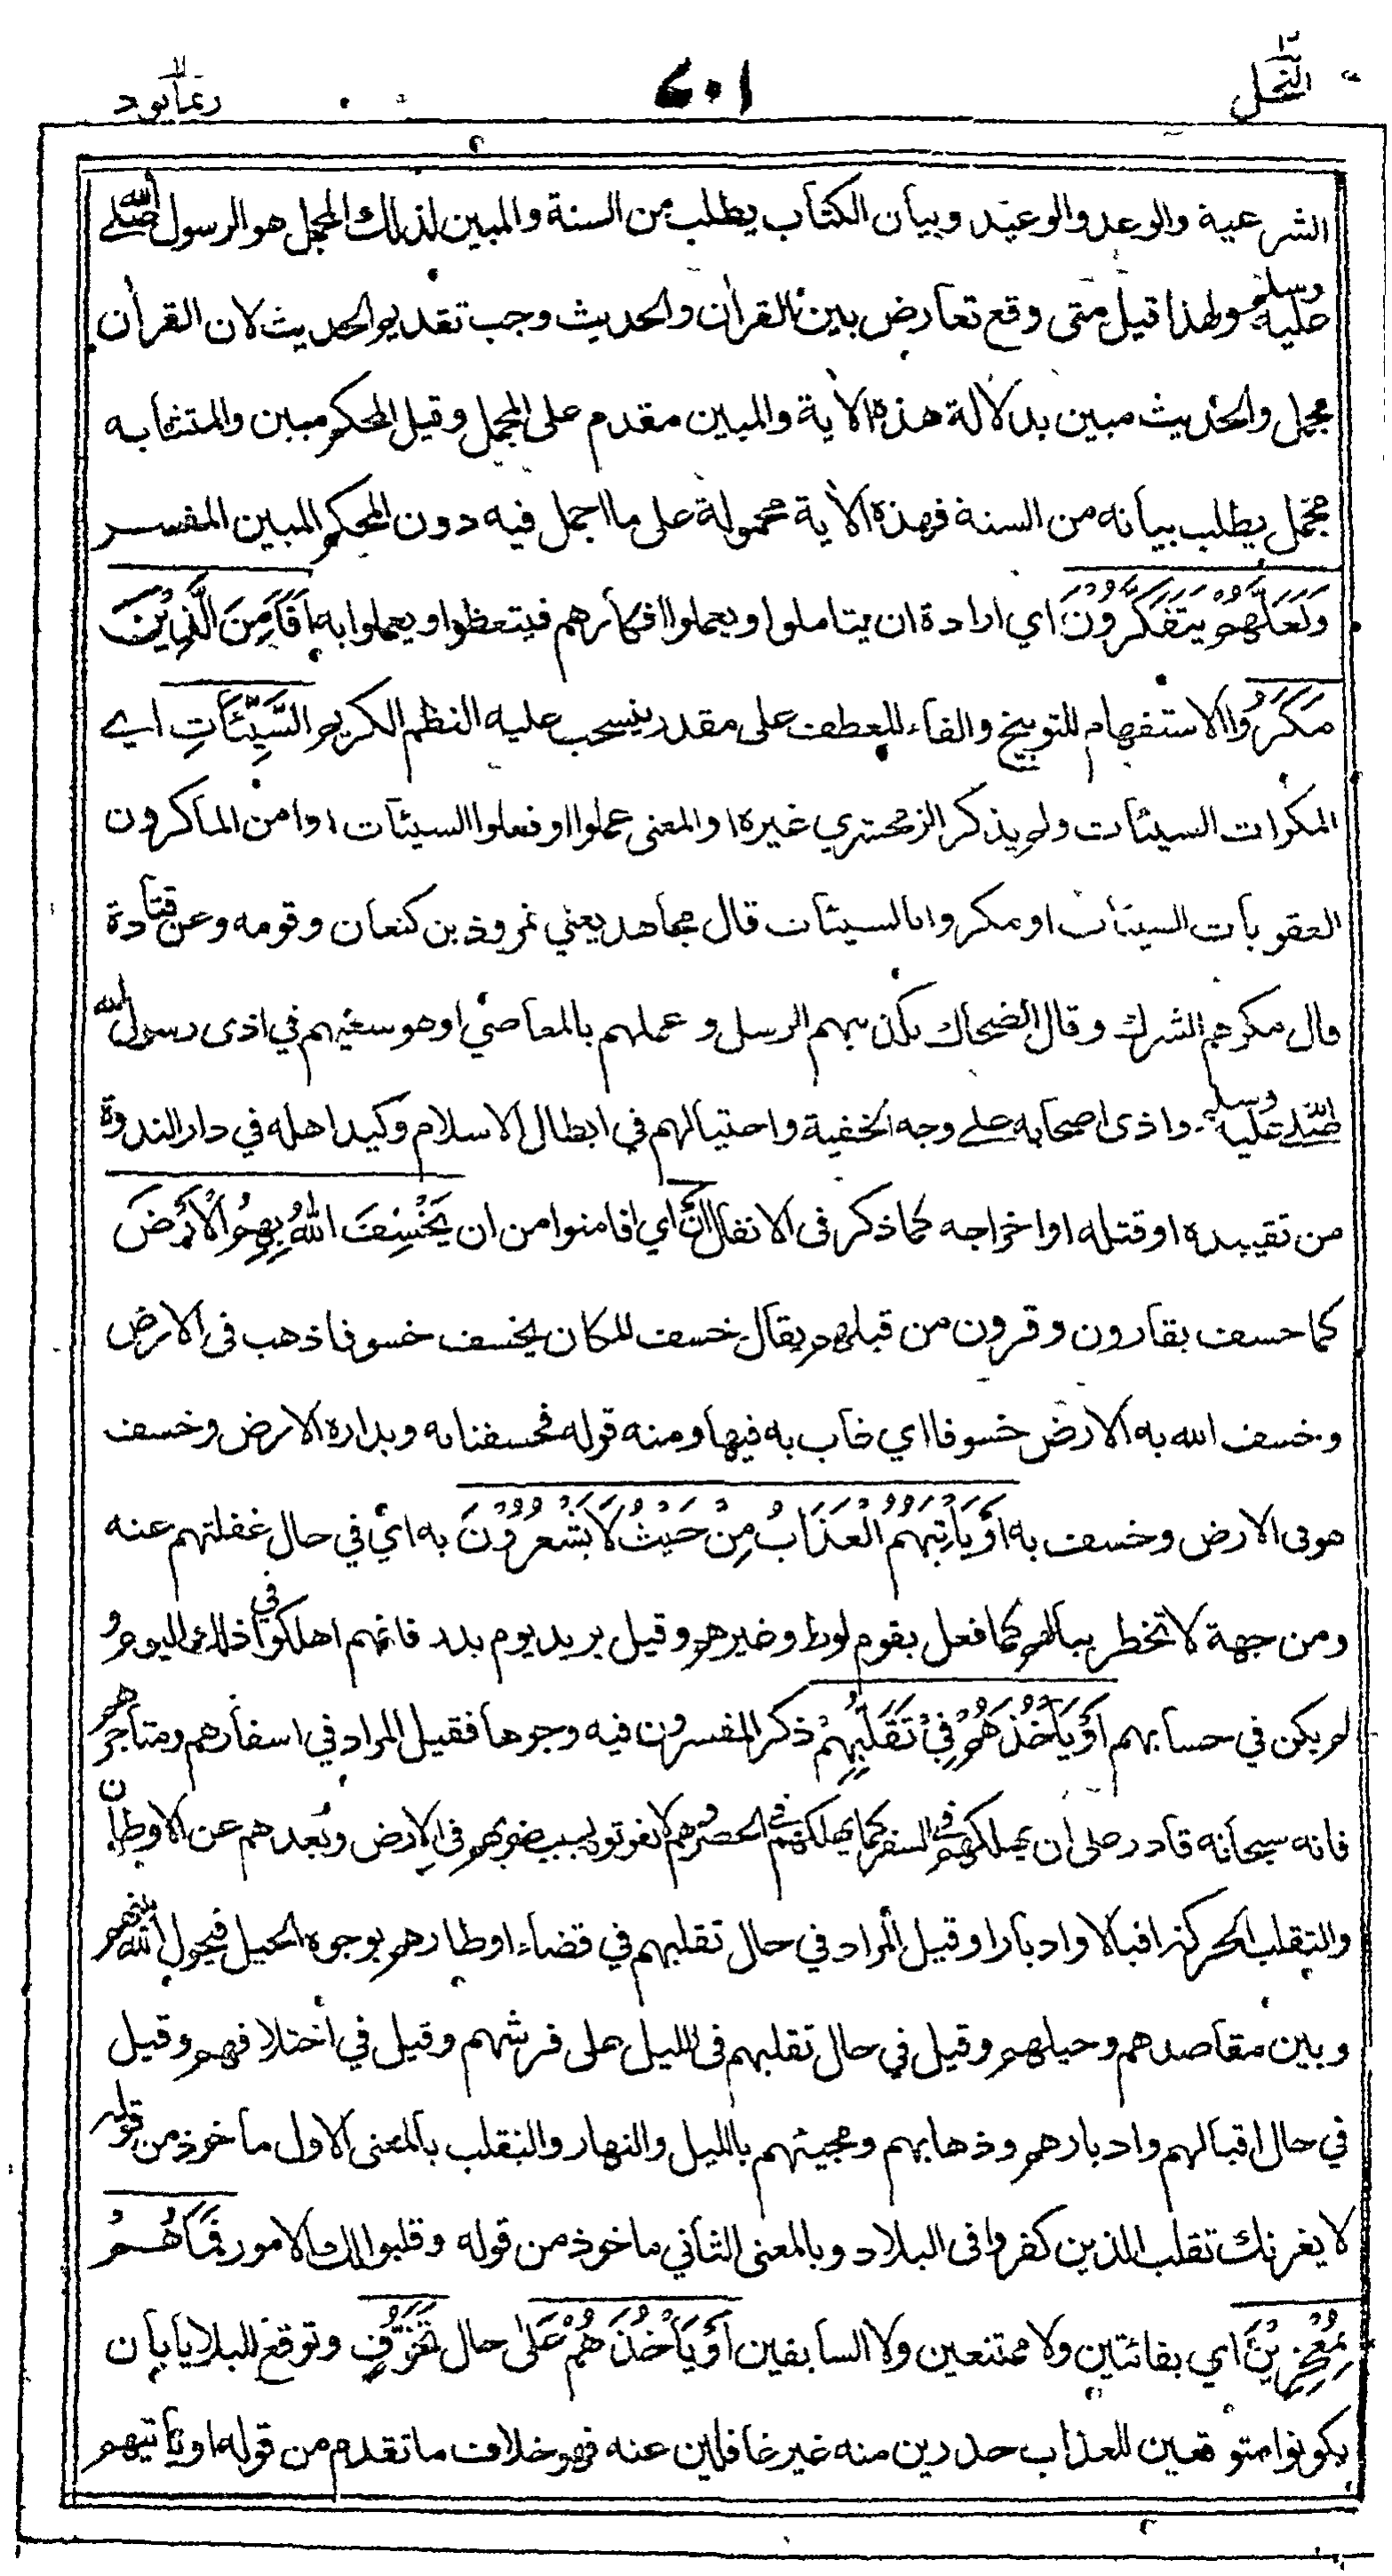 النحل
٦٠١
ربما يود
الشرعية والوعد والوعيد وبيان الكتاب يطلب من السنة والمبين لذلك المجمل هو الرسول صلى الله
عليه وسلم ولهذا قيل متى وقع تعارض بين القرأن والحديث وجب تقديم الحديث لان القرأن
مجمل والحديث مبين بدلالة هذه الأية والمبين مقدم على المجمل وقيل المحكم مبين والمتشابه
مجمل يطلب بيانه من السنة فهذه الأية محمولة على ما اجمل فيه دون المحكم المبين المفسر
وَلَعَلَّهُمْ يَتَفَكَّرُونَ اي ارادة ان يتاملوا ويعملوا افكارهم فيتعظوا ويعملوا به أَفَأَمِنَ الَّذِيْنَ
مَكَرُوا الاستفهام للتوبيخ والفاء للعطف على مقدر ينسحب عليه النظم الكريم السَّيِّئَاتِ اي
المكرات السيئات ولم يذكر الزمخشري غيره او المعنى عملوا او فعلوا السيئات او امن الماكرون
العقوبات السيئات او مكروا بالسيئات قال مجاهد يعني نمروذ بن كنعان وقومه وعن قتادة
قال مكرهم الشرك وقال الضحاك تكذيبهم الرسل وعملهم بالمعاصي او هو سعيهم في اذى رسول الله
صلى الله عليه وسلم واذى اصحابه على وجه الخفية واحتيالهم في ابطال الاسلام وكيد اهله في دار الندوة
من تقييده او قتله او اخراجه كما ذكر في الانفال أَنْ اي افامنوا من ان يَخْسِفَ اللهُ بِهِمُ الْأَرْضَ
كما خسف بقارون وقرون من قبلهم يقال خسف المكان يخسف خسوفا ذهب في الارض
وخسف الله به الارض خسوفا اي غاب به فيها ومنه قوله فخسفنا به وبداره الارض وخسف
هو في الارض وخسف به أَوْ يَأْتِيَهُمُ الْعَذَابُ مِنْ حَيْثُ لَا يَشْعُرُوْنَ به اي في حال غفلتهم عنه
ومن جهة لا تخطر ببالهم كما فعل بقوم لوط وغيرهم وقيل يريد يوم بدر فانهم اهلكوا في ذلك اليوم و
لم يكن في حسابهم أَوْ يَأْخُذَهُمْ فِيْ تَقَلُّبِهِمْ ذكر المفسرون فيه وجوها فقيل المراد في اسفارهم ومتاجرهم
فانه سبحانه قادر على ان يهلكهم في السفر كما يهلكهم في الحضر وهم لا يفوتونه بسبب ضربهم في الارض وبعدهم عن الاوطان
والتقلب الحركة اقبالا وادبارا وقيل المراد في حال تقلبهم في قضاء اوطارهم بوجوه الحيل فيحول الله بينهم
وبين مقاصدهم وحيلهم وقيل في حال تقلبهم في الليل على فرشهم وقيل في اختلافهم وقيل
في حال اقبالهم وادبارهم وذهابهم ومجيئهم بالليل والنهار والتقلب بالمعنى الاول ماخوذ من قوله
لا يغرنك تقلب الذين كفروا في البلاد وبالمعنى الثاني ماخوذ من قوله وقلبوا لك الامور فَمَا هُمْ
بِمُعْجِزِيْنَ اي بفائتين ولا ممتنعين ولا السابقين أَوْ يَأْخُذَهُمْ عَلٰى حال تَخَوُّفٍ وتوقع للبلايا بان
يكونوا متوقعين للعذاب حذرين منه غير غافلين عنه فهو خلاف ما تقدم من قوله او يأتيهم